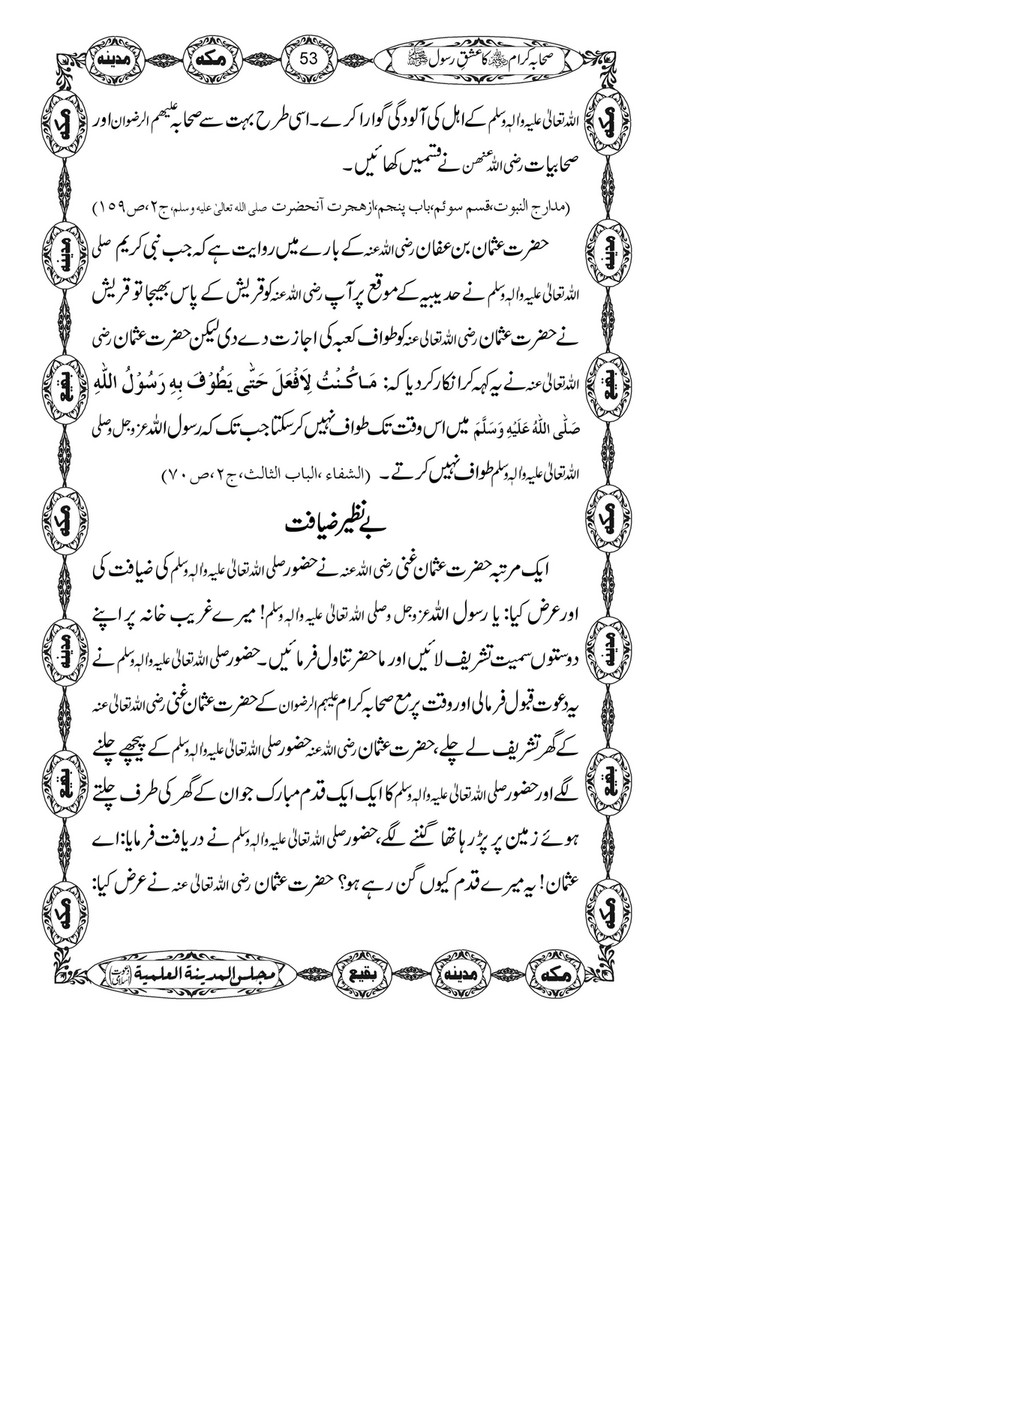 صحابہ کرام ﷺ کا عشق رسول ﷺ
53
مکه
مدینه
اللہ تعالیٰ علیہ واٰلہٖ وسلم کے اہل کی آلودگی گوارا کرے۔ اسی طرح بہت سے صحابہ علیھم الرضوان اور
صحابیات رضی اللہ عنھن نے قسمیں کھائیں ۔
(مدارج النبوت،قسم سوئم،باب پنجم،ازهجرت آنحضرت صلی الله تعالیٰ علیه وسلم،ج۲،ص۱۵۹)
حضرت عثمان بن عفان رضی اللہ عنہ کے بارے میں روایت ہے کہ جب نبی کریم صلی
اللہ تعالیٰ علیہ واٰلہٖ وسلم نے حدیبیہ کے موقع پر آپ رضی اللہ عنہ کو قریش کے پاس بھیجا تو قریش
نے حضرت عثمان رضی اللہ تعالی عنہ کو طواف کعبہ کی اجازت دے دی لیکن حضرت عثمان رضی
اللہ تعالیٰ عنہ نے یہ کہہ کر انکار کر دیا کہ: مَاکُنْتُ لِاَفْعَلَ حَتّٰی یَطُوْفَ بِهٖ رَسُوْلُ اللّٰهِ
صَلَّی اللّٰهُ عَلَیْهِ وَسَلَّمَ میں اس وقت تک طواف نہیں کرسکتا جب تک کہ رسول اللہ عزوجل وصلی
اللہ تعالیٰ علیہ واٰلہٖ وسلم طواف نہیں کرتے ۔ (الشفاء ،الباب الثالث،ج۲،ص۷۰)
بے نظیر ضیافت
ایک مرتبہ حضرت عثمان غنی رضی اللہ عنہ نے حضور صلی اللہ تعالیٰ علیہ واٰلہٖ وسلم کی ضیافت کی
اور عرض کیا: یا رسول اللہ عزوجل وصلی اللہ تعالیٰ علیہ واٰلہٖ وسلم! میرے غریب خانہ پر اپنے
دوستوں سمیت تشریف لائیں اور ماحضر تناول فرمائیں۔ حضور صلی اللہ تعالیٰ علیہ واٰلہٖ وسلم نے
یہ دعوت قبول فرمالی اور وقت پر مع صحابہ کرام علیہم الرضوان کے حضرت عثمان غنی رضی اللہ تعالیٰ عنہ
کے گھر تشریف لے چلے، حضرت عثمان رضی اللہ عنہ حضور صلی اللہ تعالیٰ علیہ واٰلہٖ وسلم کے پیچھے چلنے
لگے اور حضور صلی اللہ تعالیٰ علیہ واٰلہٖ وسلم کا ایک ایک قدم مبارک جو ان کے گھر کی طرف چلتے
ہوئے زمین پر پڑ رہا تھا گننے لگے، حضور صلی اللہ تعالیٰ علیہ واٰلہٖ وسلم نے دریافت فرمایا: اے
عثمان! یہ میرے قدم کیوں گن رہے ہو؟ حضرت عثمان رضی اللہ تعالیٰ عنہ نے عرض کیا:
مکه
مدینه
بقیع
مکه
مدینه
بقیع
مکه
مکه
مدینه
بقیع
مکه
مدینه
بقیع
مکه
مکه
مدینه
بقیع
مجلس المدینة العلمیة (دعوت اسلامی)